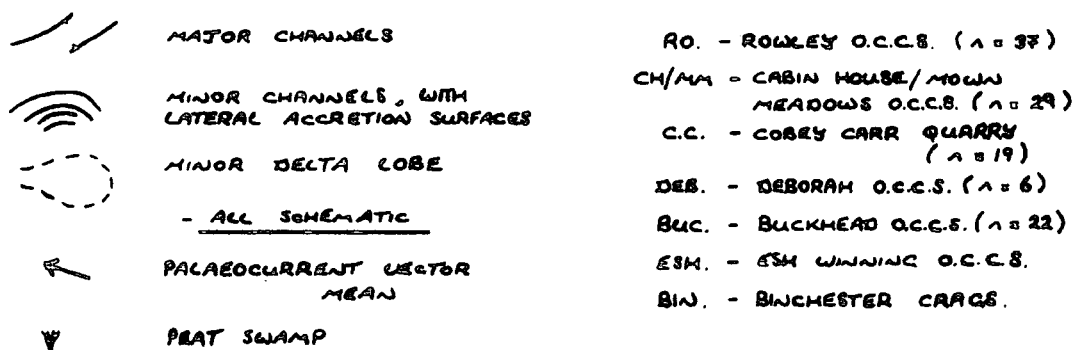 MAJOR CHANNELS
MINOR CHANNELS, WITH
LATERAL ACCRETION SURFACES
MINOR DELTA LOBE
- ALL SCHEMATIC
PALAEOCURRENT VECTOR
MEAN
PEAT SWAMP
RO. - ROWLEY O.C.C.S. (n = 37)
CH/MM - CABIN HOUSE/MOWN
MEADOWS O.C.C.S. (n = 29)
C.C. - COBEY CARR QUARRY
(n = 19)
DEB. - DEBORAH O.C.C.S. (n = 6)
BUC. - BUCKHEAD O.C.C.S. (n = 22)
ESH. - ESH WINNING O.C.C.S.
BIN. - BINCHESTER CRAGS.